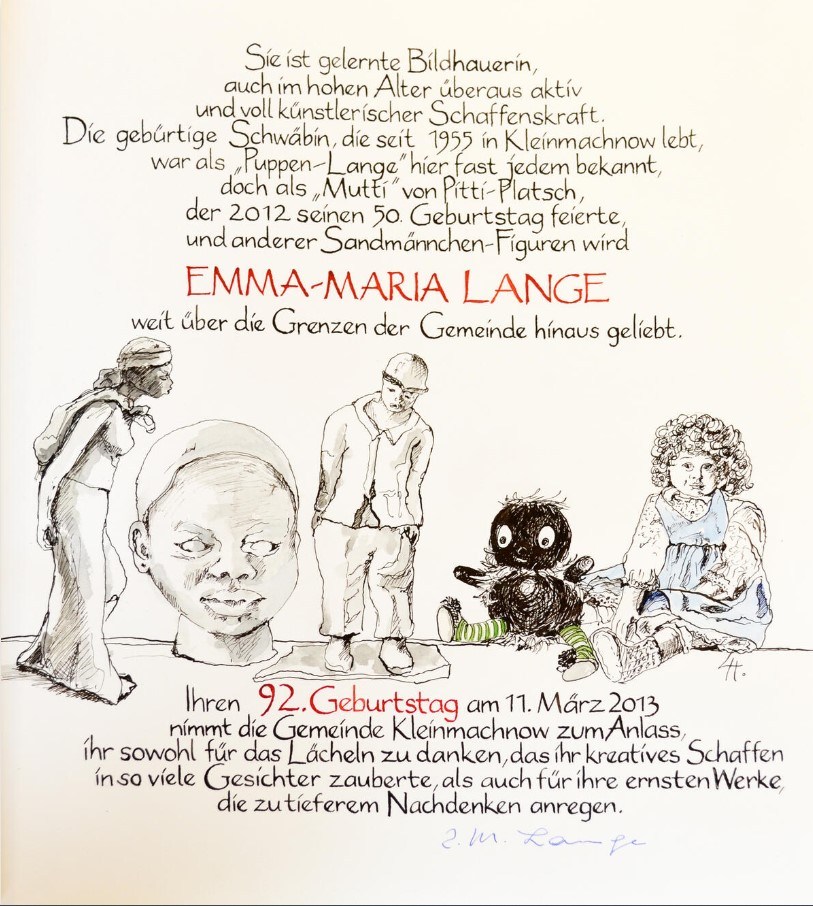 Sie ist gelernte Bildhauerin,
auch im hohen Alter überaus aktiv
und voll künstlerischer Schaffenskraft.
Die gebürtige Schwäbin, die seit 1955 in Kleinmachnow lebt,
war als „Puppen-Lange" hier fast jedem bekannt,
doch als „Mutti" von Pitti-Platsch,
der 2012 seinen 50. Geburtstag feierte,
und anderer Sandmännchen-Figuren wird
EMMA-MARIA LANGE
weit über die Grenzen der Gemeinde hinaus geliebt.
Ihren 92. Geburtstag am 11. März 2013
nimmt die Gemeinde Kleinmachnow zum Anlass,
ihr sowohl für das Lächeln zu danken, das ihr kreatives Schaffen
in so viele Gesichter zauberte, als auch für ihre ernsten Werke,
die zu tieferem Nachdenken anregen.
E. M. Lange